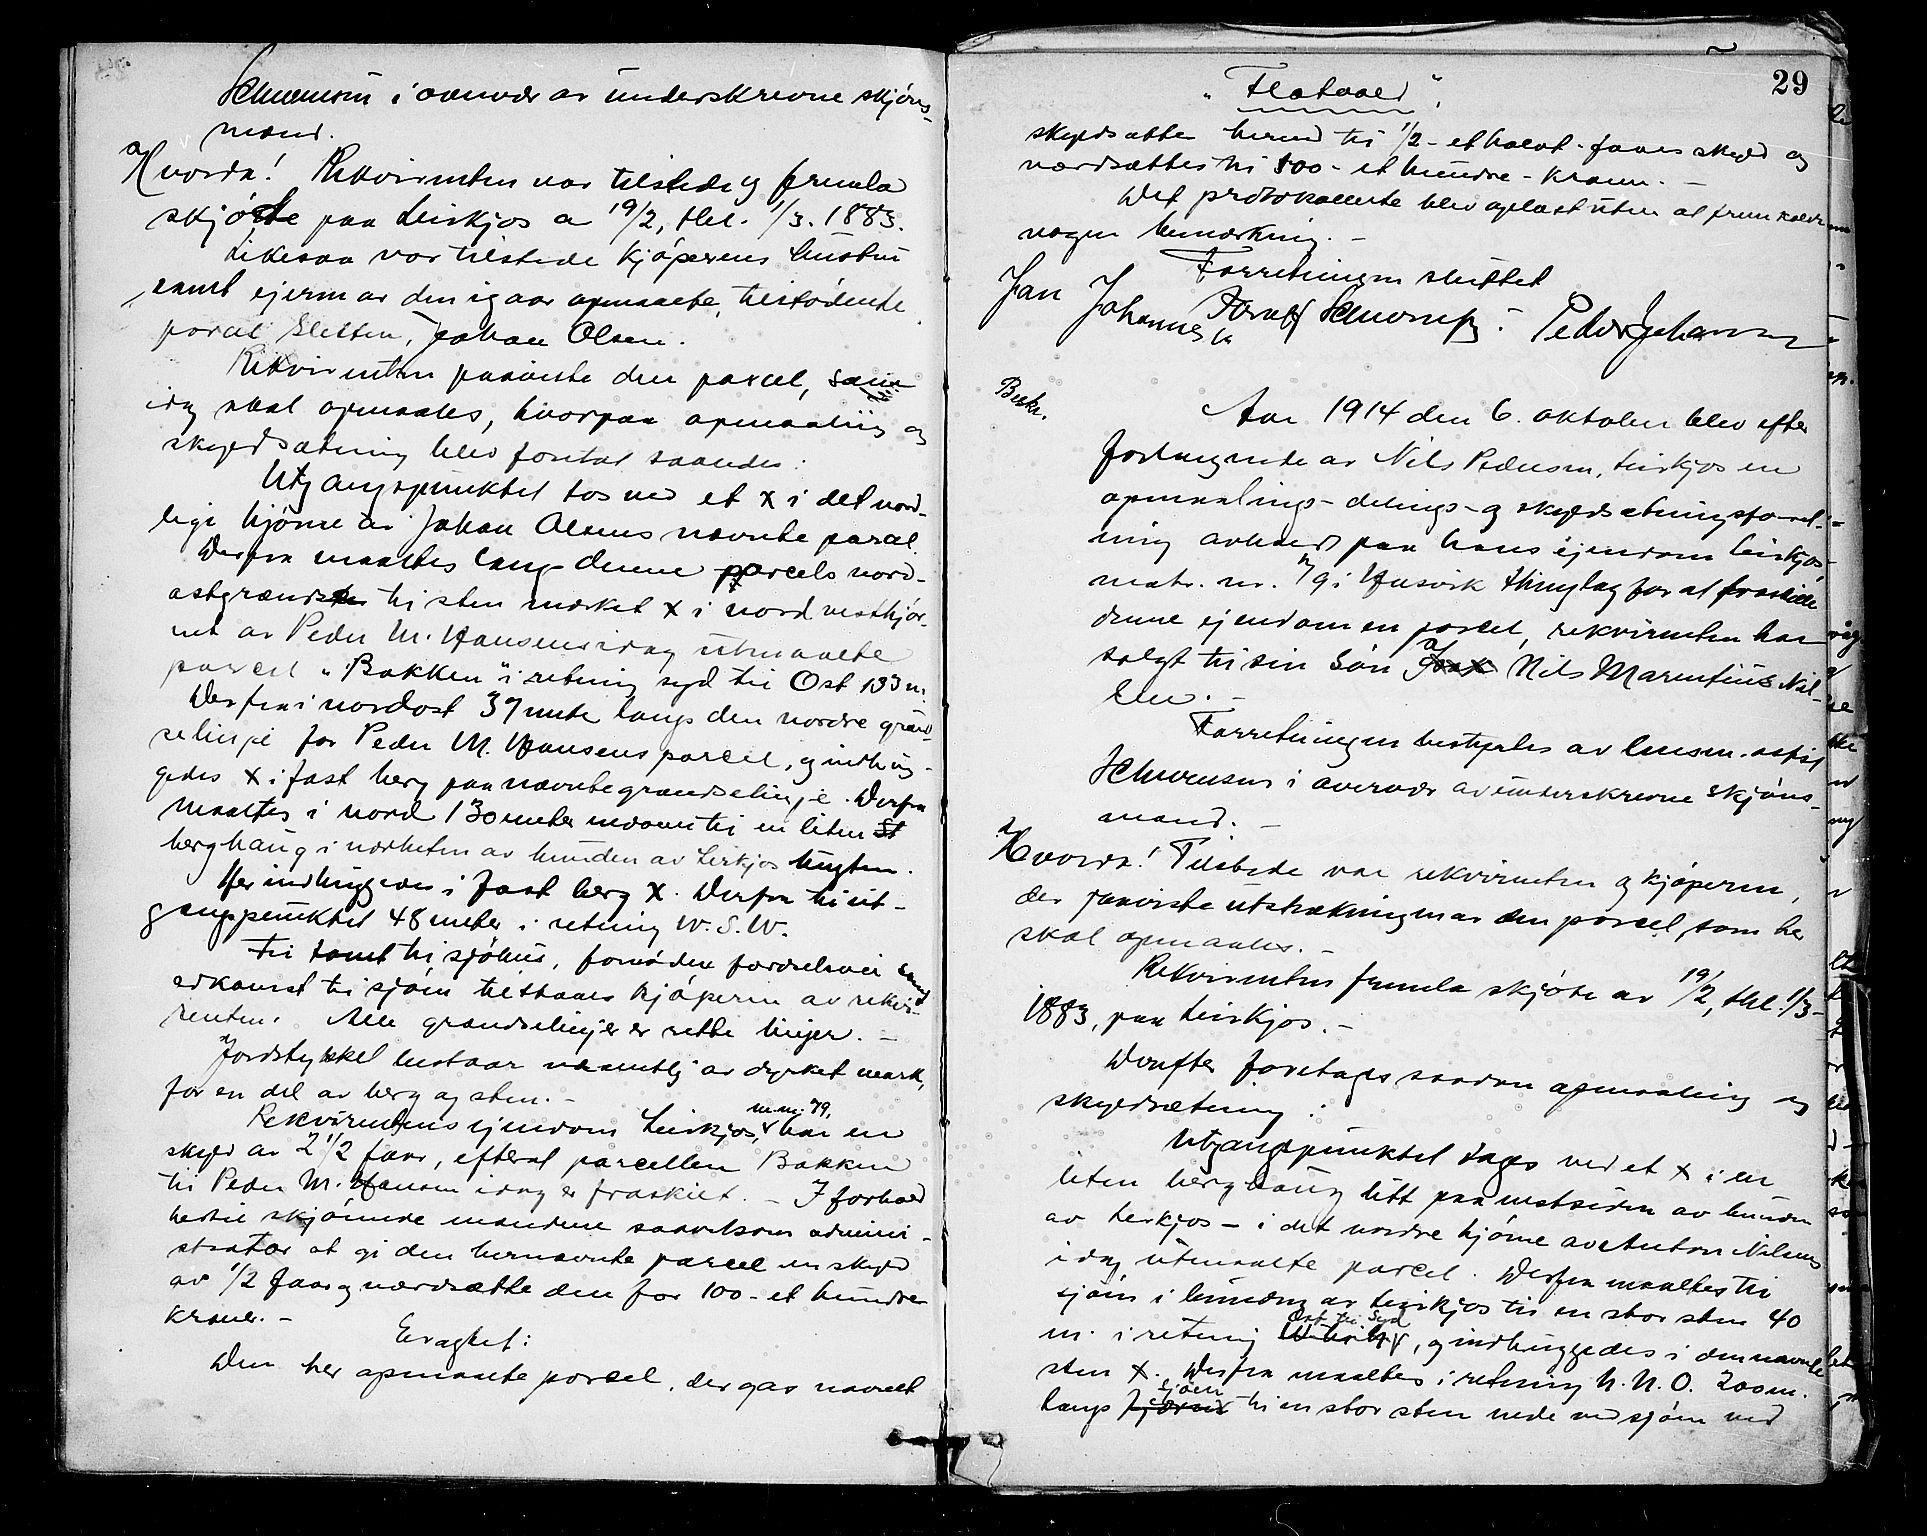 Schwensen i overvær av underskrevne skjöns-
mænd.
Hvorda! Rekvirenten var tilstede og fremla
skjöte paa Leiskjos a 19/2, thl. 1/3. 1883.
Likesaa var tilstede kjöperens hustru
samt ejeren av den igaar opmaalte, tilstödende
parcel Sletten, Johan Olsen.
Rekvirenten paaviste den parcel, som
idag skal opmaales, hvorpaa opmaaling og
skyldsætning blev foretat saaledes:
Utgangspunktet tos ved et x i det nord-
lige hjörne av Johan Olsens nævnte parcel.
Derfra maaltes langs denne parcels nord-
ostgrændse til sten merket x i nordvesthjör-
net av Peder M. Hansens idag utmaalte
parcel "Bakken" i retning syd til Ost 133 m.
Derfra i nordost 37 meter langs den nordre grænd-
selinje for Peder M. Hansens parcel, og indhug-
gedes x i fast berg paa nævnte grændselinje. Derfra
maaltes i nord 130 meter til en liten
berghaug i nærheten av bunden av Leiskjos bugten.
Her indhuggedes i fast berg x. Derfra til ut-
gangspunktet 48 meter i retning W.S.W.
Til tomt til sjöhus, fornöden færdselsvei samt
adkomst til sjöen tilstaaes kjöperen av rekvi-
renten. Alle grændselinjer er rette linjer. -
Jordstykket bestaar væsentlig av dyrket mark,
for en del av berg og sten. -
Rekvirentens ejendom Leiskjos, m.nr. 79, har en
skyld av 2 1/2 faar, efterat parcellen Bakken
til Peder M. Hansen idag er fraskilt. - I forhold
hertil skjönnede mændene saavelsom admini-
strator at gi den hernævnte parcel en skyld
av 1/2 faar og værdsætte den for 100 - et hundre
kroner. -
Eragtet:
Den her opmaalte parcel, der gav navnet
29
"Flatvold",
skyldsættes herved til 1/2 - et halvt - faars skyld og
værdsættes til 100 - et hundre - kroner. -
Det protokollerte blev oplæst uten at fremkalde
nogen bemerkning. -
Forretningen sluttet
Jan Johannes Schwensen Peder Johansen
Besk.
Aar 1914 den 6. oktober blev efter
forlangende av Nils Pedersen, Leiskjos en
opmaalings- delings- og skyldsætningsforret-
ning avholdt paa hans ejendom Leiskjos,
matr. nr. 79 i Husvik thinglag for at fraskille
denne ejendom en parcel, rekvirenten har
solgt til sin sön Nils Marentius Nil-
sen. -
Forretningen bestyrtes av lensm. asfist
Schwensen i overvær av underskrevne skjöns-
mænd. -
Hvorda! Tilstede var rekvirenten og kjöperen,
der paaviste utstrækningen av den parcel, som her
skal opmaales. -
Rekvirenten fremla skjöte av 19/2, thl. 1/3 -
1883, paa Leiskjos. -
Derefter foretages saadan opmaaling og
skyldsætning:
Utgangspunktet tages ved et x i en
liten berghaug litt paa vestsiden av bunden
av Leiskjos - i det nordre hjörne av Anton Nilsens
idag utmaalte parcel. Derfra maaltes til
sjöen i bunden av Leiskjos til en stor sten 40
m. i retning Ost til Syd, og indhuggedes i den nævnte
sten x. Derfra maaltes i retning N.N.O. 200 m.
langs sjöen til en stor sten nede ved sjöen ved